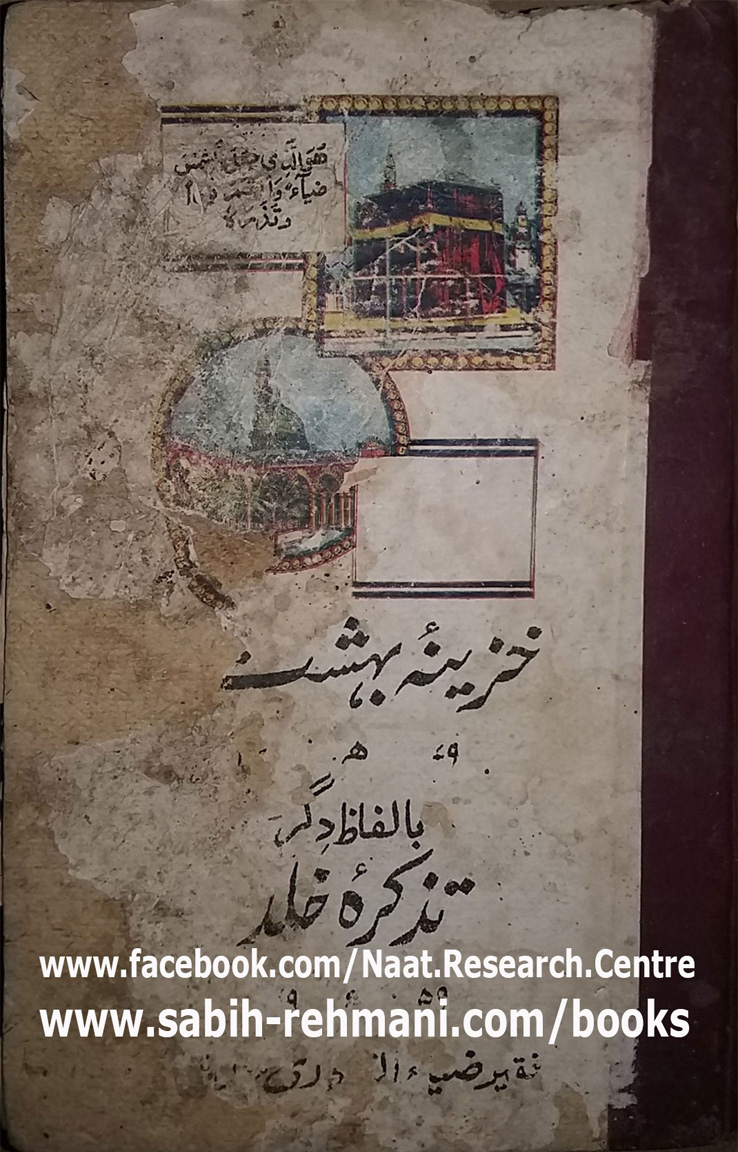 هُوَالَّذِی جعل الشمس
ضیآءً وَالقمر نورا
وقدرہ
خزینۂ بہشت
بالفاظ دِگر
تذکرۂ خلد
www.facebook.com/Naat.Research.Centre
۵۹
www.sabih-rehmani.com/books
فقیر ضیاء